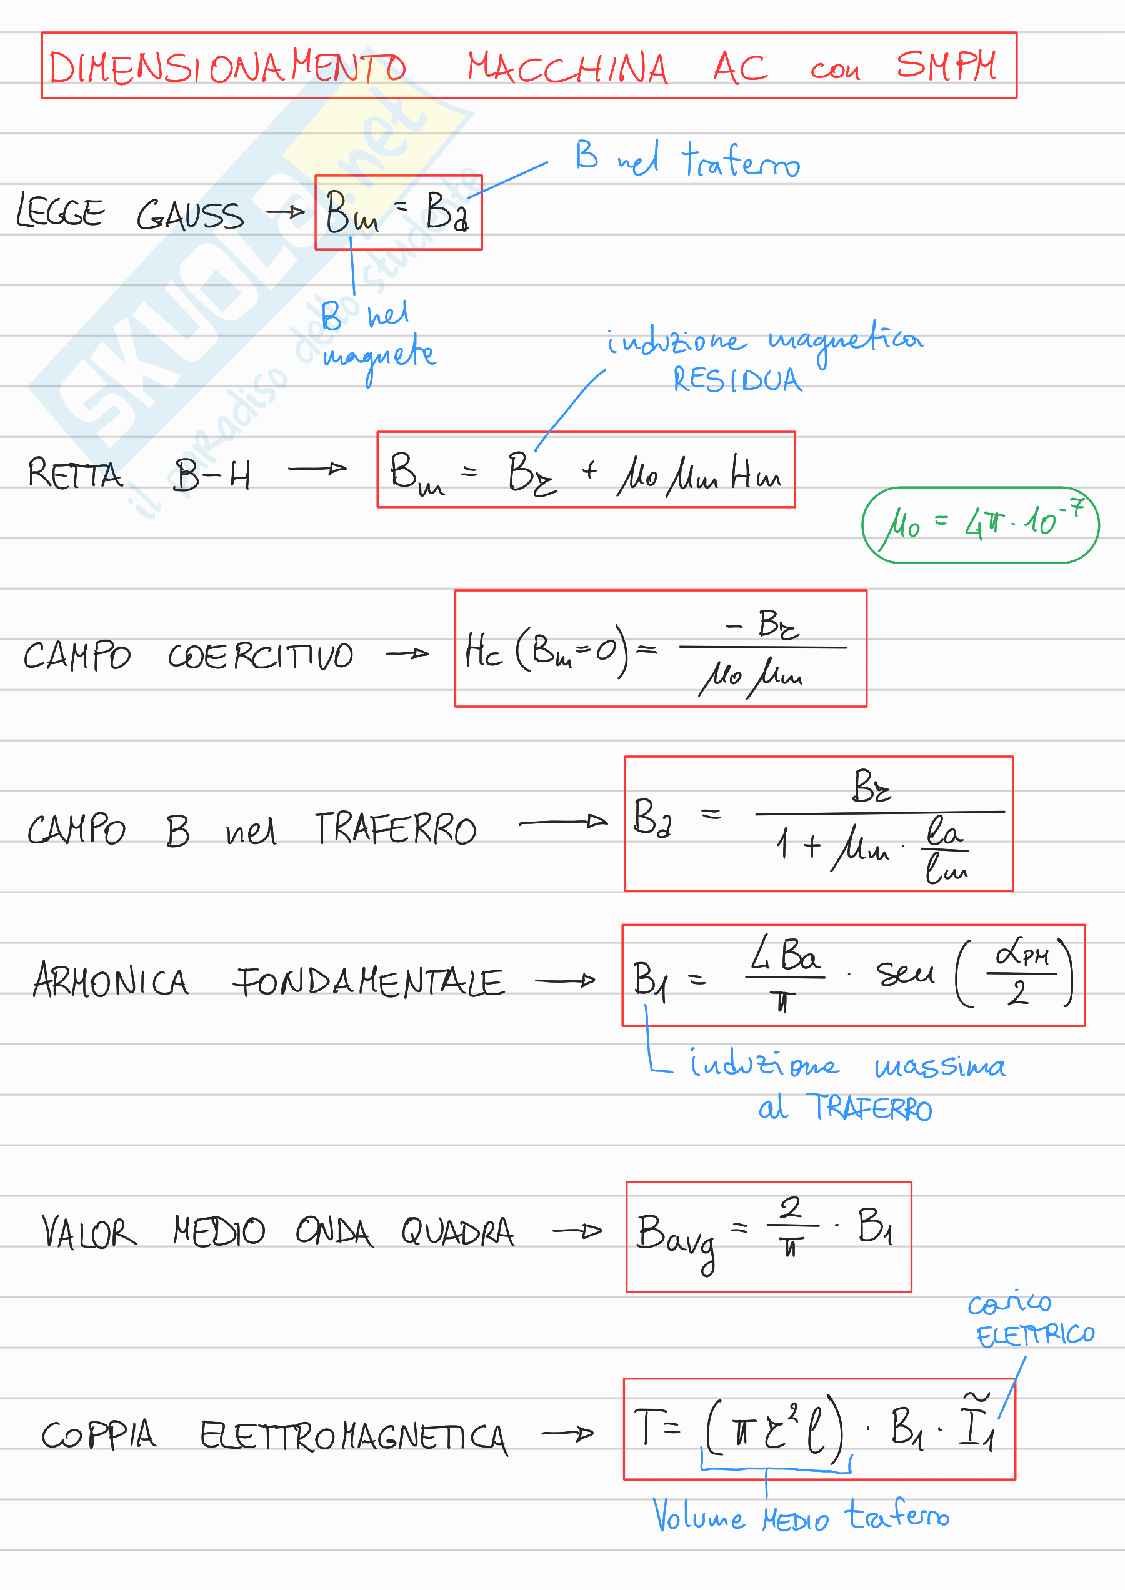 DIMENSIONAMENTO MACCHINA AC con SMPM
B nel traferro
LEGGE GAUSS → Bm = Ba
B nel
magnete
induzione magnetica
RESIDUA
RETTA B-H → Bm = Br + μ0 μm Hm
μ0 = 4π · 10^-7
CAMPO COERCITIVO → Hc (Bm=0) = - Br / (μ0 μm)
CAMPO B nel TRAFERRO → Ba = Br / (1 + μm · la/lm)
ARMONICA FONDAMENTALE → B1 = 4Ba/π · sen (αPM/2)
induzione massima
al TRAFERRO
VALOR MEDIO ONDA QUADRA → Bavg = 2/π · B1
carico
ELETTRICO
COPPIA ELETTROMAGNETICA → T = (π r² l) · B1 · Ĩ1
Volume MEDIO traferro
SKUOLA.net
il paradiso dello studente